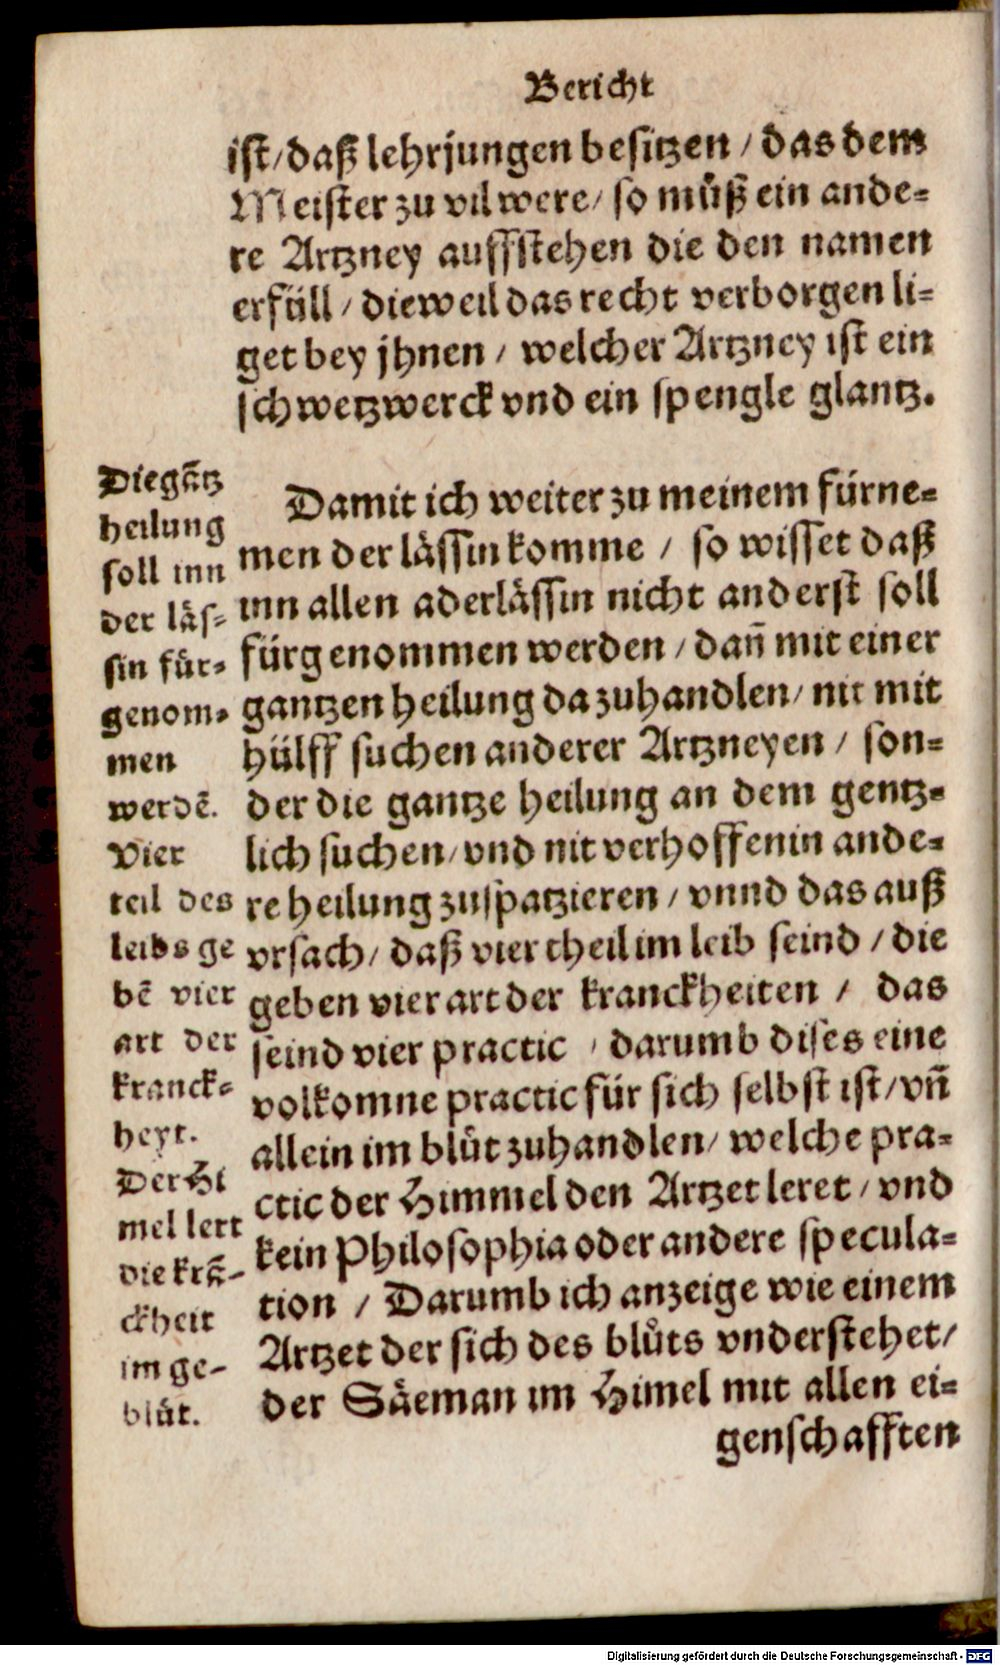 Bericht
ist/daß lehrjungen besitzen / das dem
Meister zu vil were/ so muͦß ein ande=
re Artzney auffstehen die den namen
erfüll / dieweil das recht verborgen li=
get bey jhnen / welcher Artzney ist ein
schwetzwerck vnd ein spengle glantz.
Die gãtz
heilung
soll inn
der läs=
sin für=
genom=
men
werdẽ.
Vier
teil des
leibs ge
bẽ vier
art der
kranck=
heyt.
Der Hi
mel lert
die krã=
ckheit
im ge=
bluͦt.
Damit ich weiter zu meinem fürne=
men der lässin komme / so wisset daß
inn allen aderlässin nicht anderst soll
fürgenommen werden / dañ mit einer
gantzen heilung da zuhandlen/ nit mit
hülff suchen anderer Artzneyen / son=
der die gantze heilung an dem gentz=
lich suchen/ vnd nit verhoffen in ande=
re heilung zuspatzieren / vnnd das auß
vrsach/ daß vier theil im leib seind / die
geben vier art der kranckheiten / das
seind vier practic / darumb dises eine
volkomne practic für sich selbst ist/ vñ
allein im bluͦt zuhandlen/ welche pra=
ctic der Himmel den Artzet leret / vnd
kein Philosophia oder andere specula=
tion / Darumb ich anzeige wie einem
Artzet der sich des bluͦts vnderstehet/
der Säeman im Himel mit allen ei=
genschafften
Digitalisierung gefördert durch die Deutsche Forschungsgemeinschaft - DFG